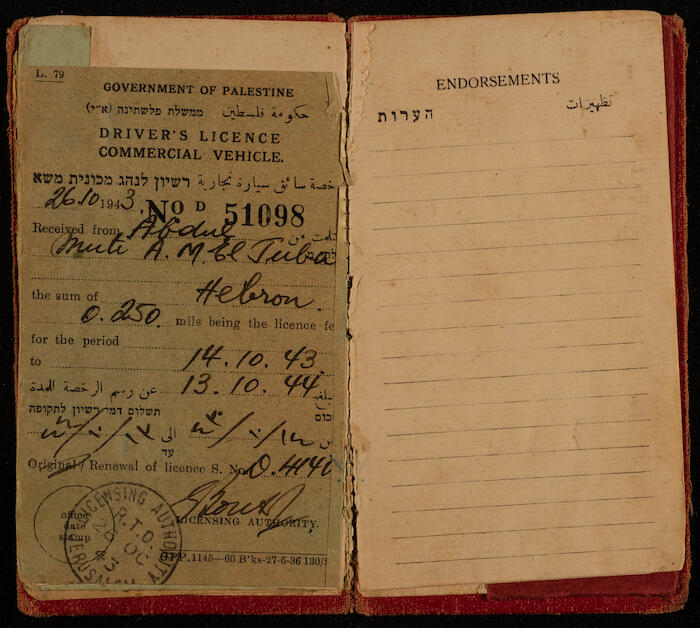 L. 79
GOVERNMENT OF PALESTINE
حكومة فلسطين ממשלת פלשתינה (א״י)
DRIVER'S LICENCE
COMMERCIAL VEHICLE.
خصة سائق سيارة تجارية רשיון לנהג מכונית משא
26.10 1943. No D 51098
Received from Abdul
Muti A. M. El Tuba
the sum of Hebron.
0.250. mils being the licence fe
for the period
14.10.43
to
13.10.44 عن رسم الرخصة للمدة
תשלום דמי רשיון לתקופה
סכום
الى
עד
Original/Renewal of licence S. No
LICENSING AUTHORITY.
office
date
stamp
LICENSING AUTHORITY
R.T.O.
26 OC
43
JERUSALEM
GPP. 1145—60 B'ks-27-6-36 130/S
ENDORSEMENTS
הערות تظهيرات